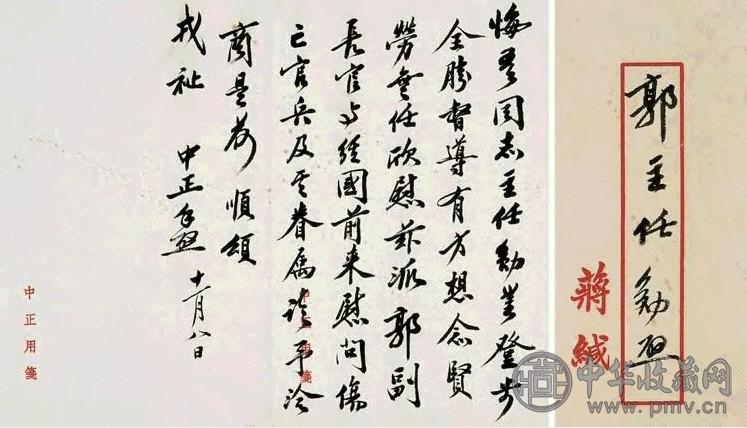 郭主任勛啟
蔣緘
悔吾同志主任勛鑒登步
全勝督導有方想念賢
勞無任欣慰茲派郭副
長官与經國前來慰問傷
亡官兵及其眷屬請予洽
商是荷 順頌
戎祉 中正手啟 十一月八日
中正用箋
中华收藏网
www.pmv.cn